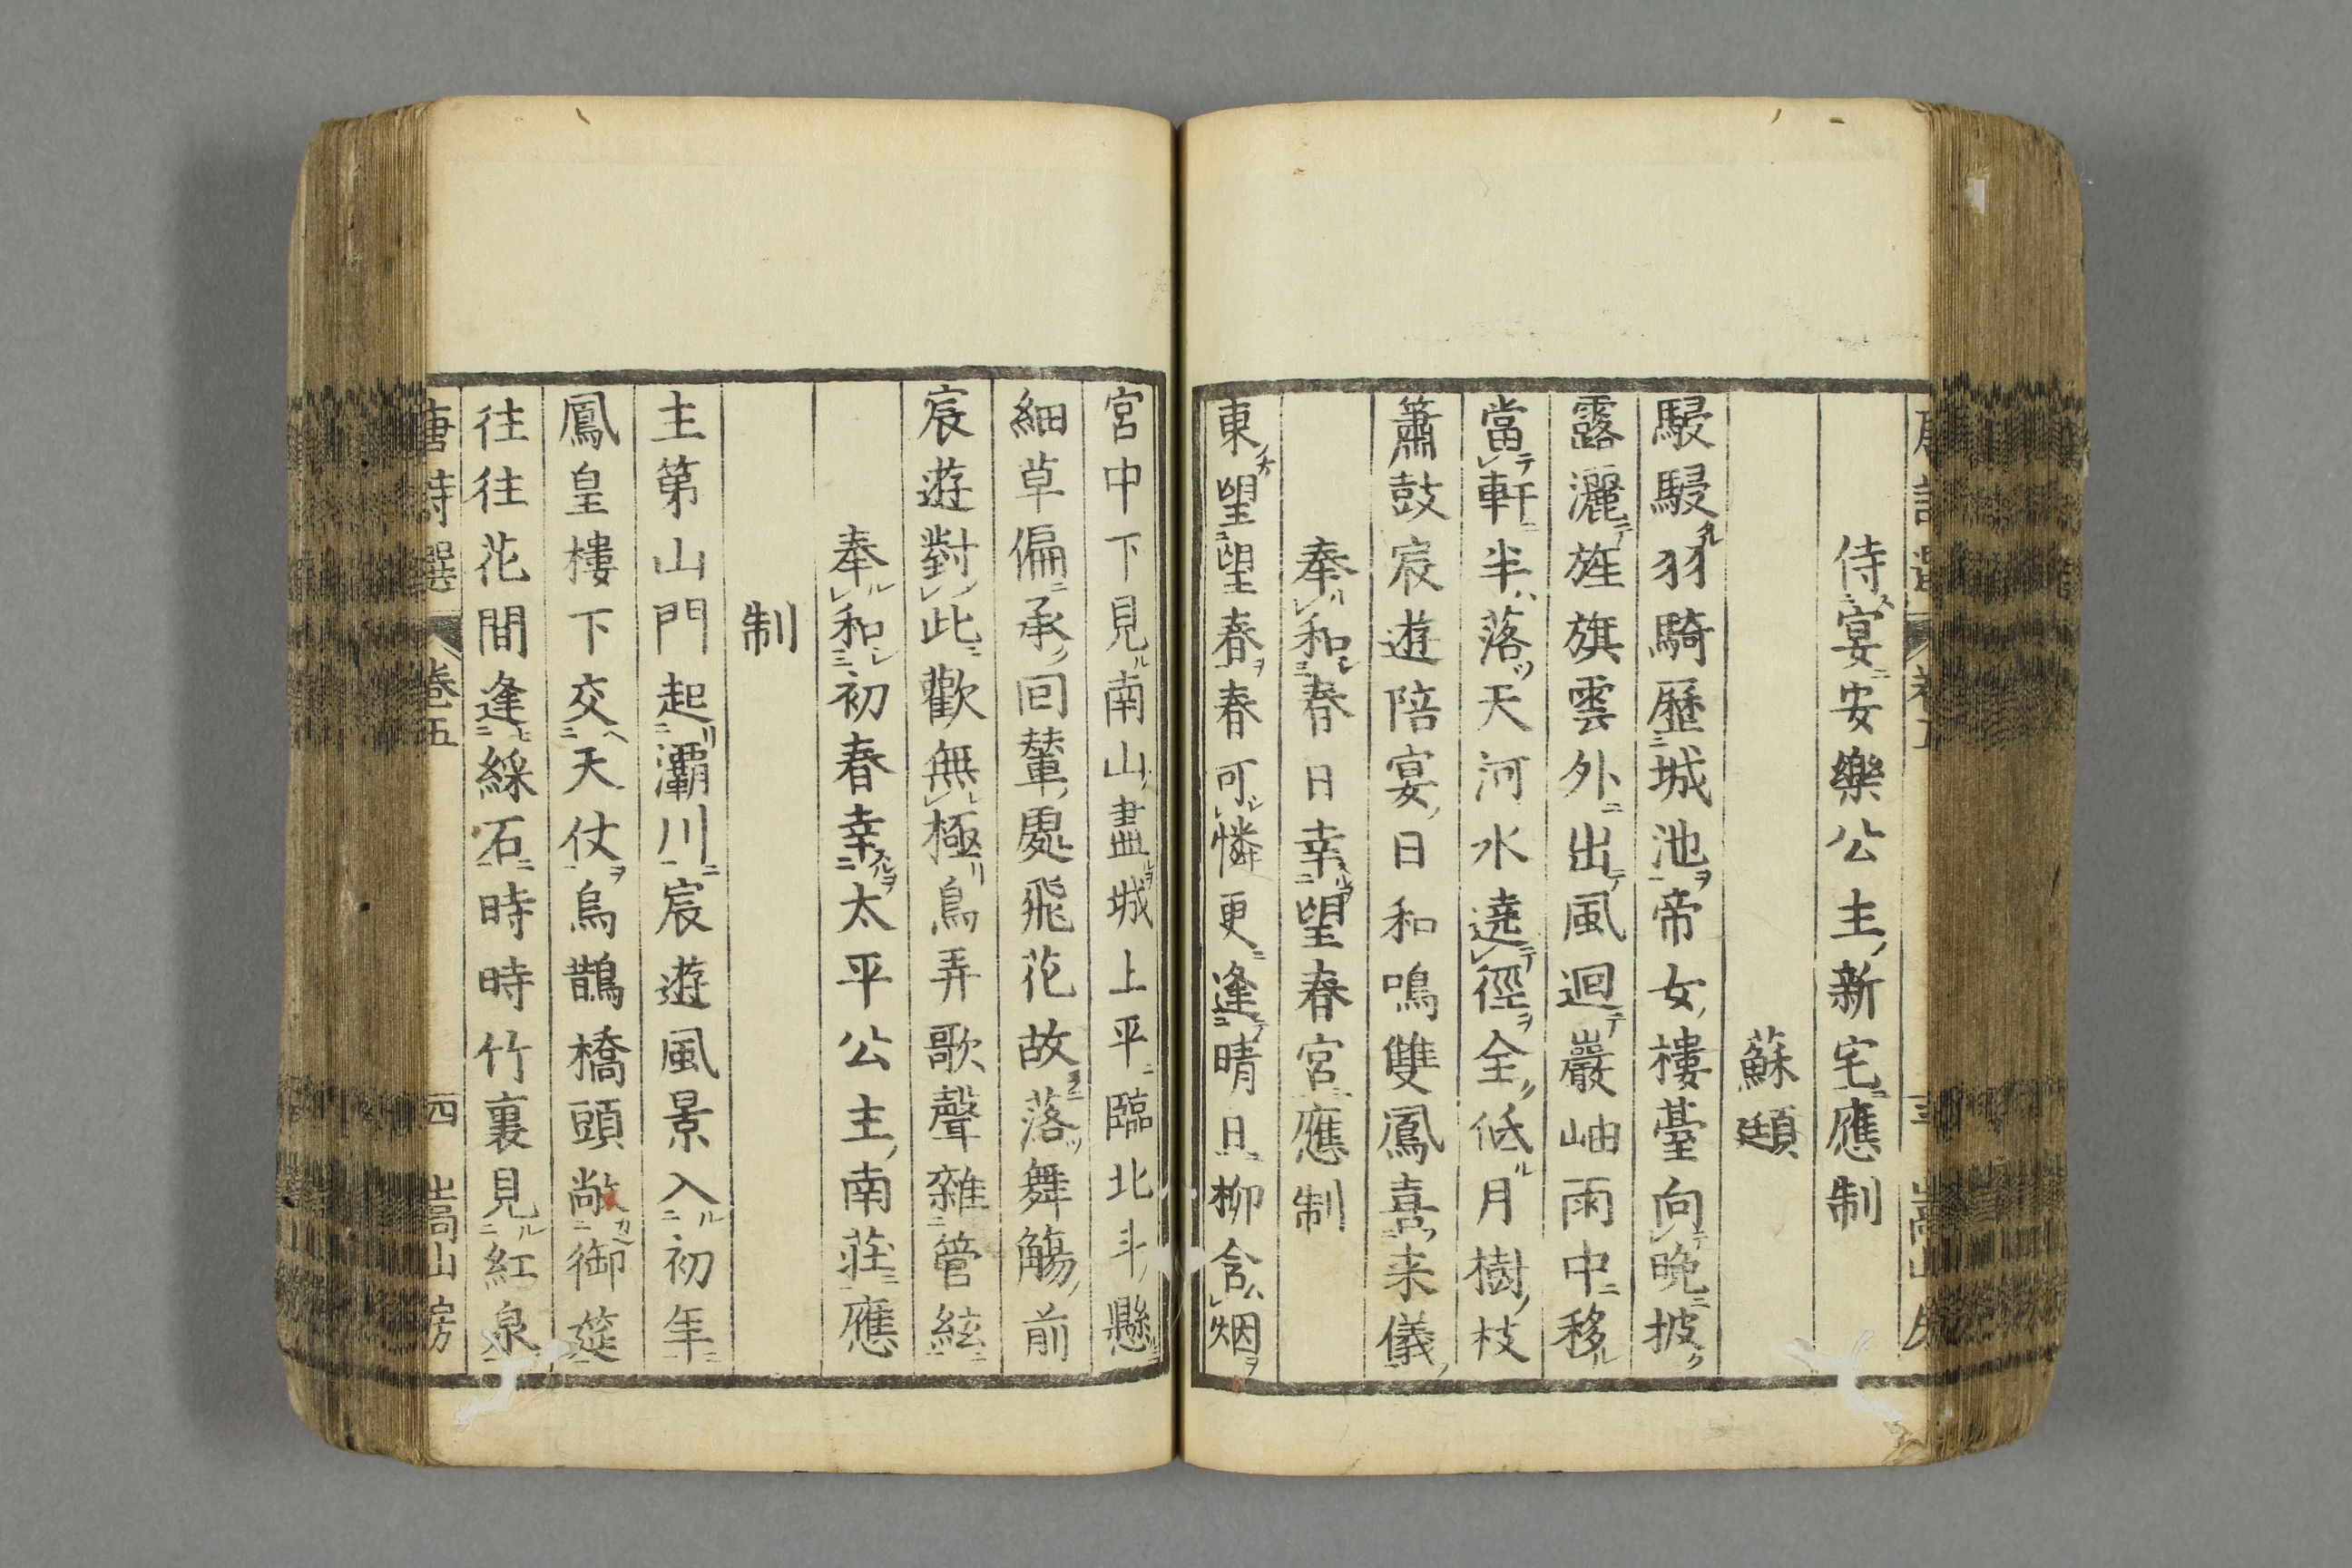 侍宴安樂公主新宅應制
蘇頲
駸駸羽騎歷城池帝女樓臺向晚披
露灑旌旗雲外出風迴巖岫雨中移
當軒半落天河水遶徑全低月樹枝
簫鼓宸遊陪宴日和鳴雙鳳喜来儀
奉和春日幸望春宮應制
東望望春春可憐更逢晴日柳含烟
宮中下見南山盡城上平臨北斗懸
細草偏承回輦處飛花故落舞觴前
宸遊對此歡無極鳥弄歌聲雜管絃
奉和初春幸太平公主南莊應
制
主第山門起灞川宸遊風景入初年
鳳皇樓下交天仗烏鵲橋頭敞御筵
往往花間逢綵石時時竹裏見紅泉
唐詩選 卷五 四 嵩山房